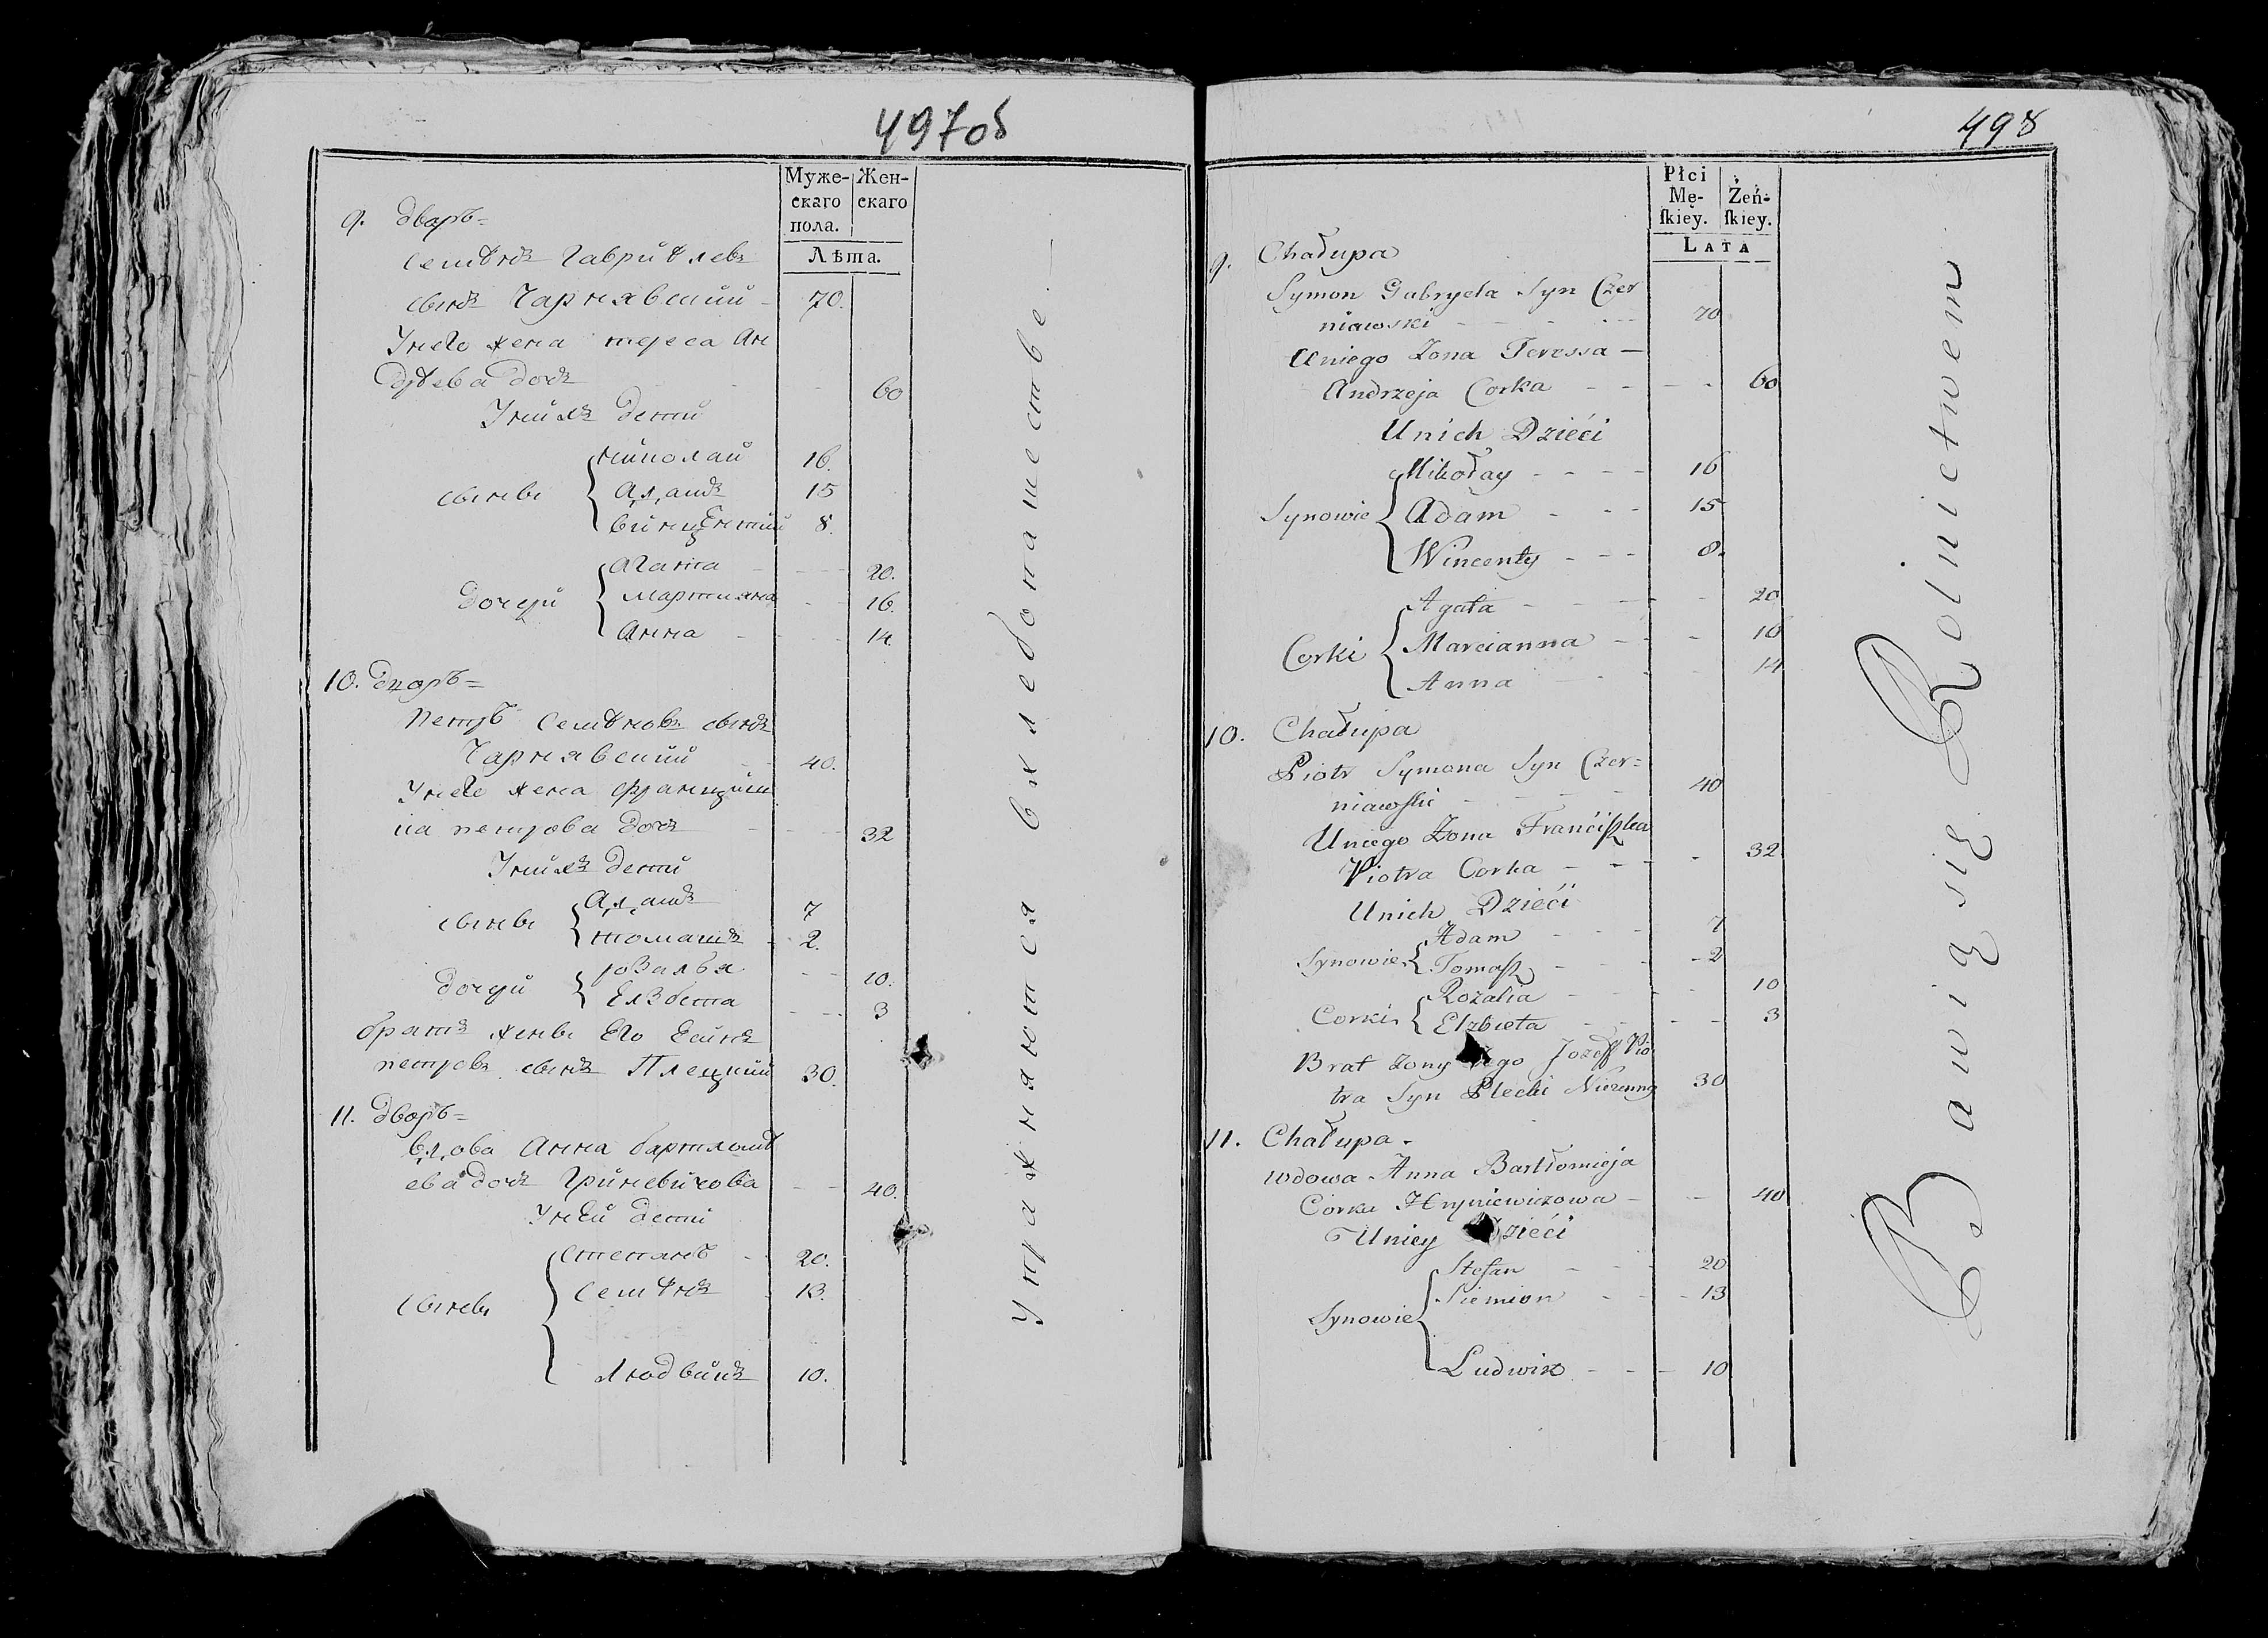 497об
Муже-
скаго
пола.
Жен-
скаго
Лѣта.
9. Дворъ=
Семіонъ Гавриіловъ
сынъ Чарнявский - 70.
У него жена тереса Ан
дреева дочь 60
У нихъ дети
сыны
николай 16.
Адамъ 15
винцентий 8.
дочери
Агата 20.
Мартияна 16.
Анна 14.
10. Дворъ=
Петръ Семіоновъ сынъ
Чарнявский 40.
У него жена францишк
ка петрова дочь 32
У нихъ дети
сыны
Адамъ 7
томашъ 2.
дочери
розалья 10.
Елзбета 3
братъ жены Его
петровъ сынъ Плецкий 30.
11. Дворъ=
вдова Анна бартломі
ева дочь Гриневичова 40.
У ней дети
сыны
степанъ 20.
семіонъ 13.
людвикъ 10.
Упражняются в хлебопашестве.
498
Płci
Mę-
ſkiey.
Żeń-
ſkiey.
LATA
9. Chałupa
Symon Gabryela Syn Czer
niawski 70
Uniego Żona Teressa —
Andrzeja Corka 60
Unich Dzieći
Synowie
Mikołay 16
Adam 15
Wincenty 8.
Corki
Agata 20
Marcianna 16
Anna 14
10. Chałupa
Piotr Symona Syn Czer=
niawſki 40
Uniego Żona Franćiſzka
Piotra Corka 32
Unich Dzieći
Synowie
Adam 7
Tomaſz 2
Corki
Rozalia 10
Elzbieta 3
Brat Zony Jego Jozeff Pio
tra Syn Plecki 30
11. Chałupa.
wdowa Anna Bartłomieja
Corka Hryniewiczowa 40
Uniey Dzieći
Synowie
Stefan 20
Siemion 13
Ludwik 10
Bawią się Rolnictwem